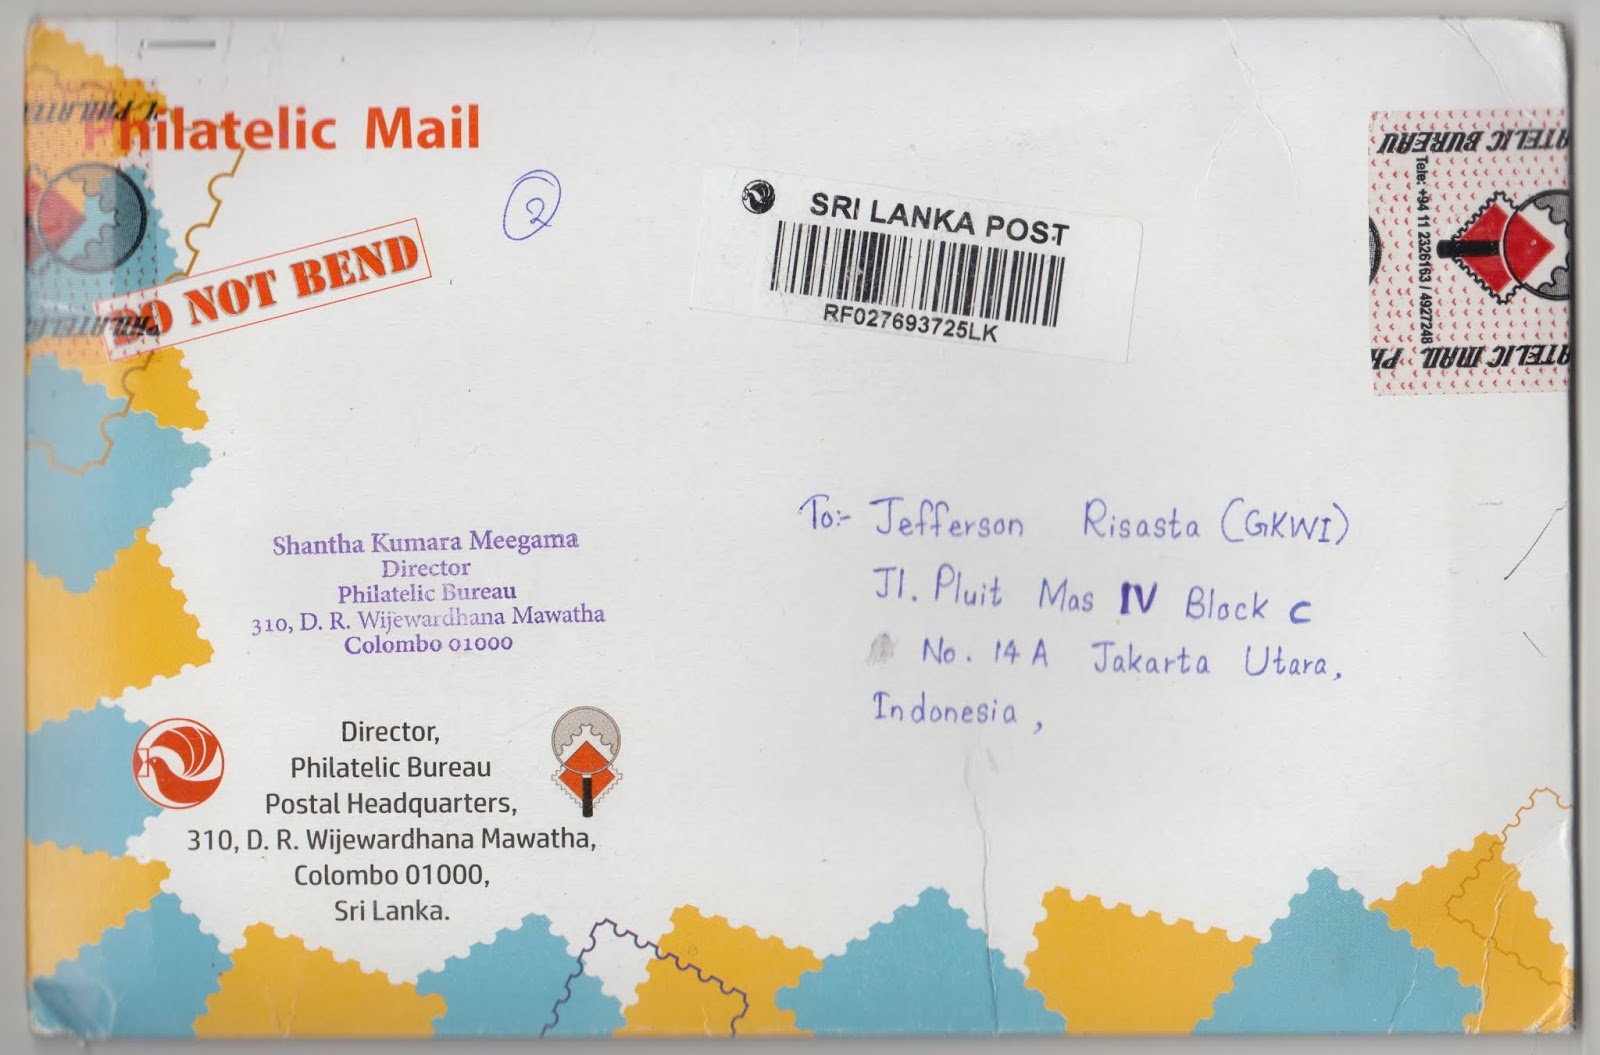 Philatelic Mail
DO NOT BEND
2
SRI LANKA POST
RF027693725LK
PHILATELIC BUREAU
Tele: +94 11 2326163 / 4927248
PHILATELIC MAIL
To:- Jefferson Risasta (GKWI)
Jl. Pluit Mas IV Block C
No. 14 A Jakarta Utara,
Indonesia,
Shantha Kumara Meegama
Director
Philatelic Bureau
310, D. R. Wijewardhana Mawatha
Colombo 01000
Director,
Philatelic Bureau
Postal Headquarters,
310, D. R. Wijewardhana Mawatha,
Colombo 01000,
Sri Lanka.